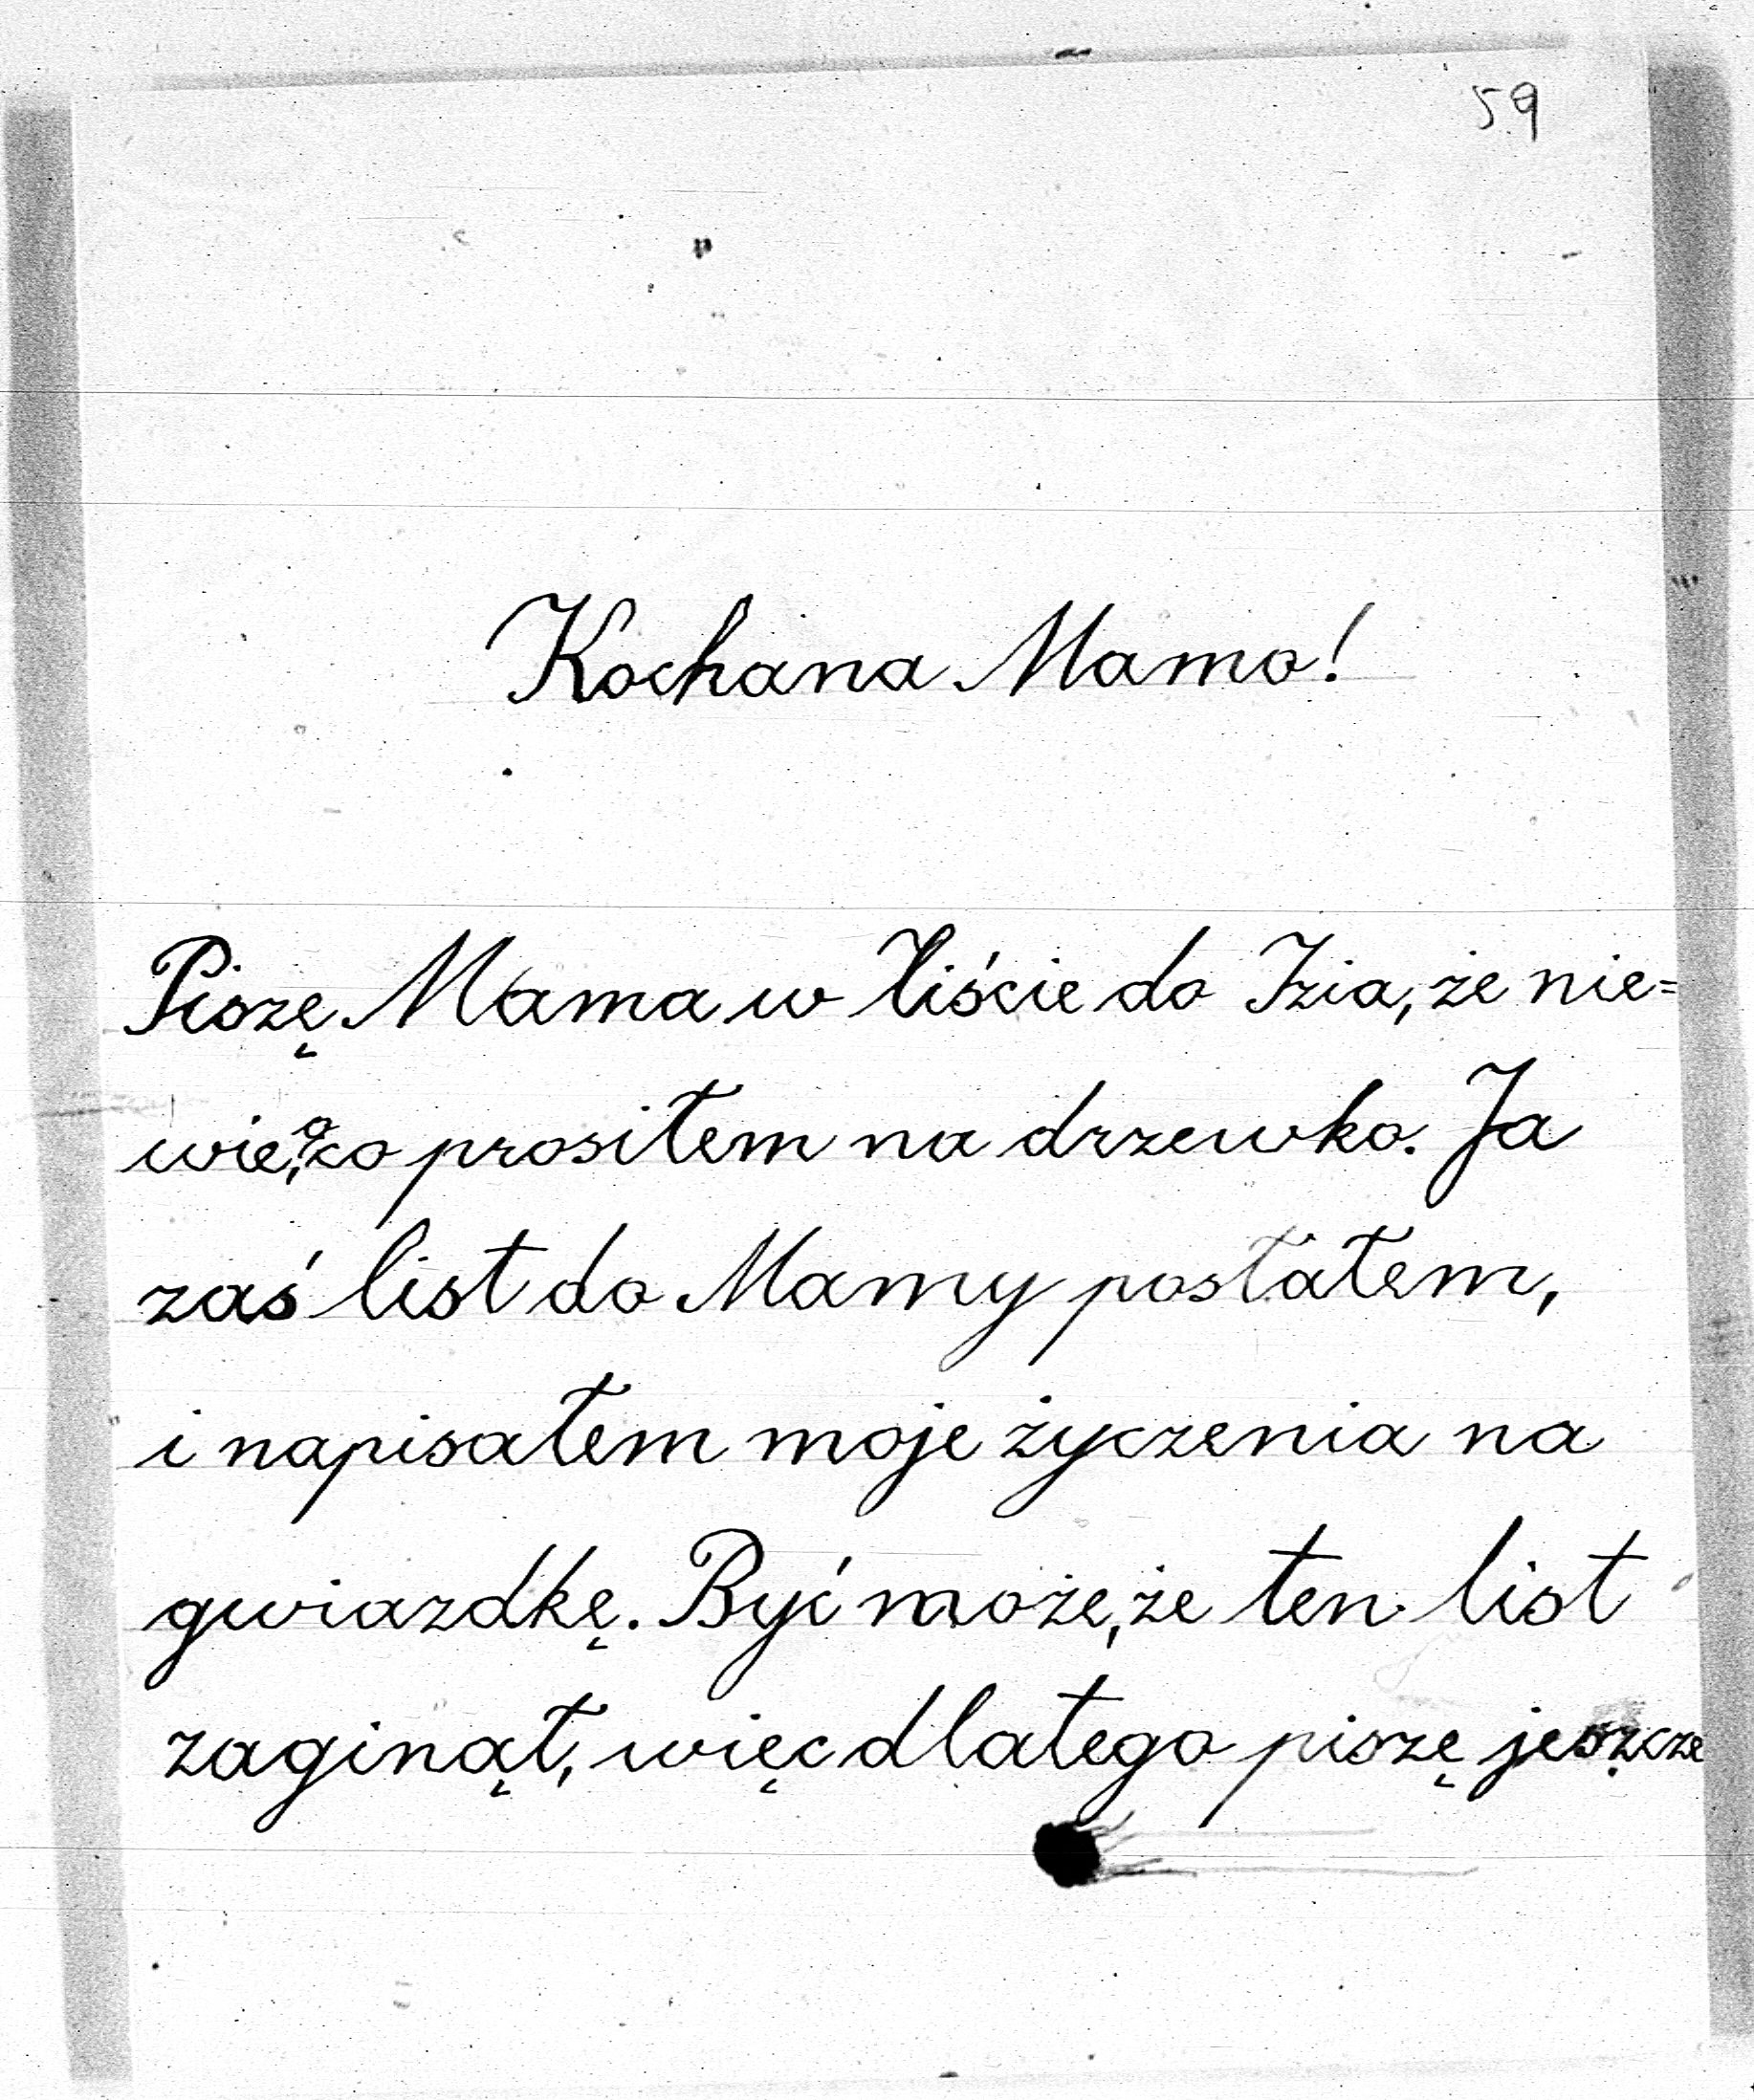 59
Kochana Mamo!
Piszę Mama w liście do Izia, że nie=
wie, o co prosiłem na drzewko. Ja
zaś list do Mamy posłałem,
i napisałem moje życzenia na
gwiazdkę. Być może, że ten list
zaginął, więc dlatego piszę jeszcze